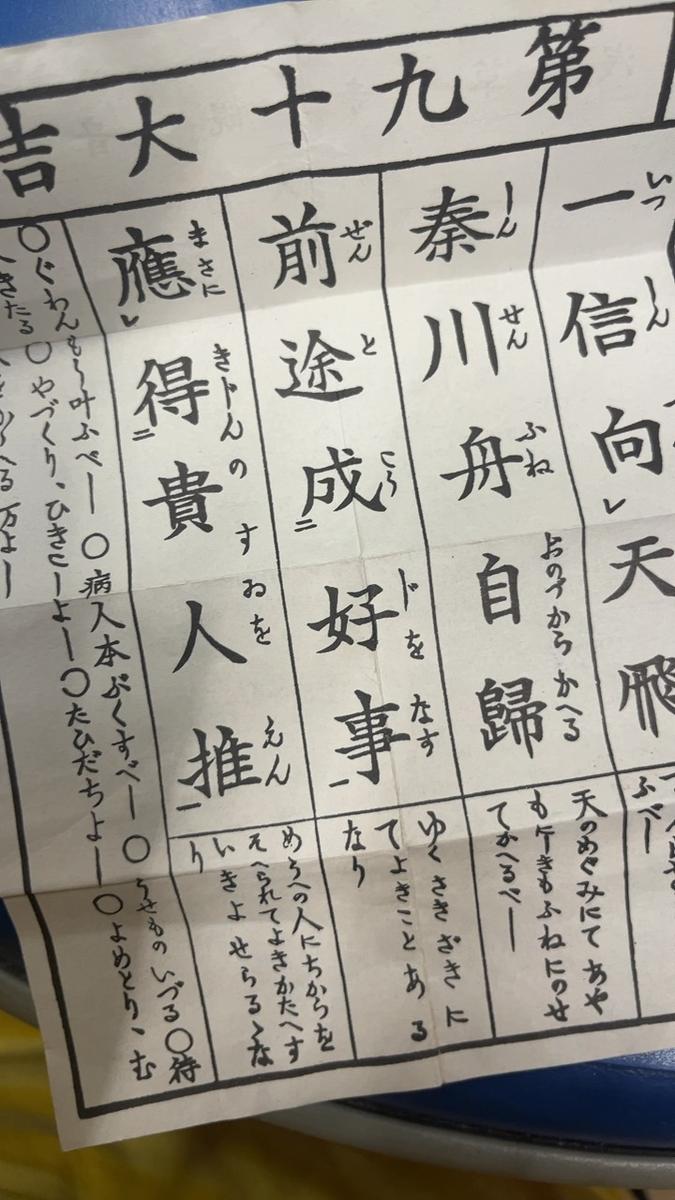 第九十大吉
一信向天飛
いつ しん
ふべし
秦川舟自歸
しん せん ふね おのづから かへる
天のめぐみにて あや
もなきもふねにのせ
てかへるべし
前途成好事
ぜん と こう じを なす
ゆくさきざきに
てよきことある
なり
應得貴人推
まさに きじんの すゐを えん
めうへの人にちからを
そへられてよきかたへす
いきよせらるゝな
り
○ぐわんもう叶ふべし ○病人本ぷくすべし ○うせものいづる ○待
○やづくり、ひきこしよし ○たびだちよし ○よめとり、む